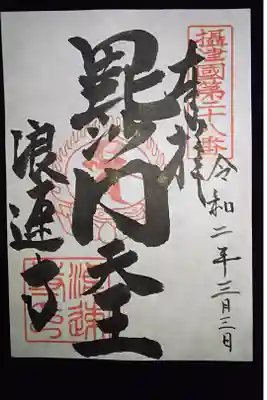 攝津國第二十八番
奉拝
令和二年三月三日
毘沙門天王
浪速寺